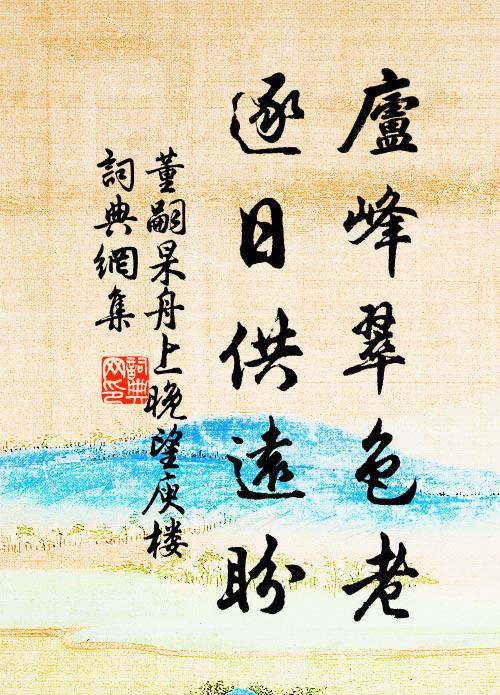 廬峰翠色老
逐日供遠盼
董嗣杲舟上晚望庾楼
詞典網集
詞典網印